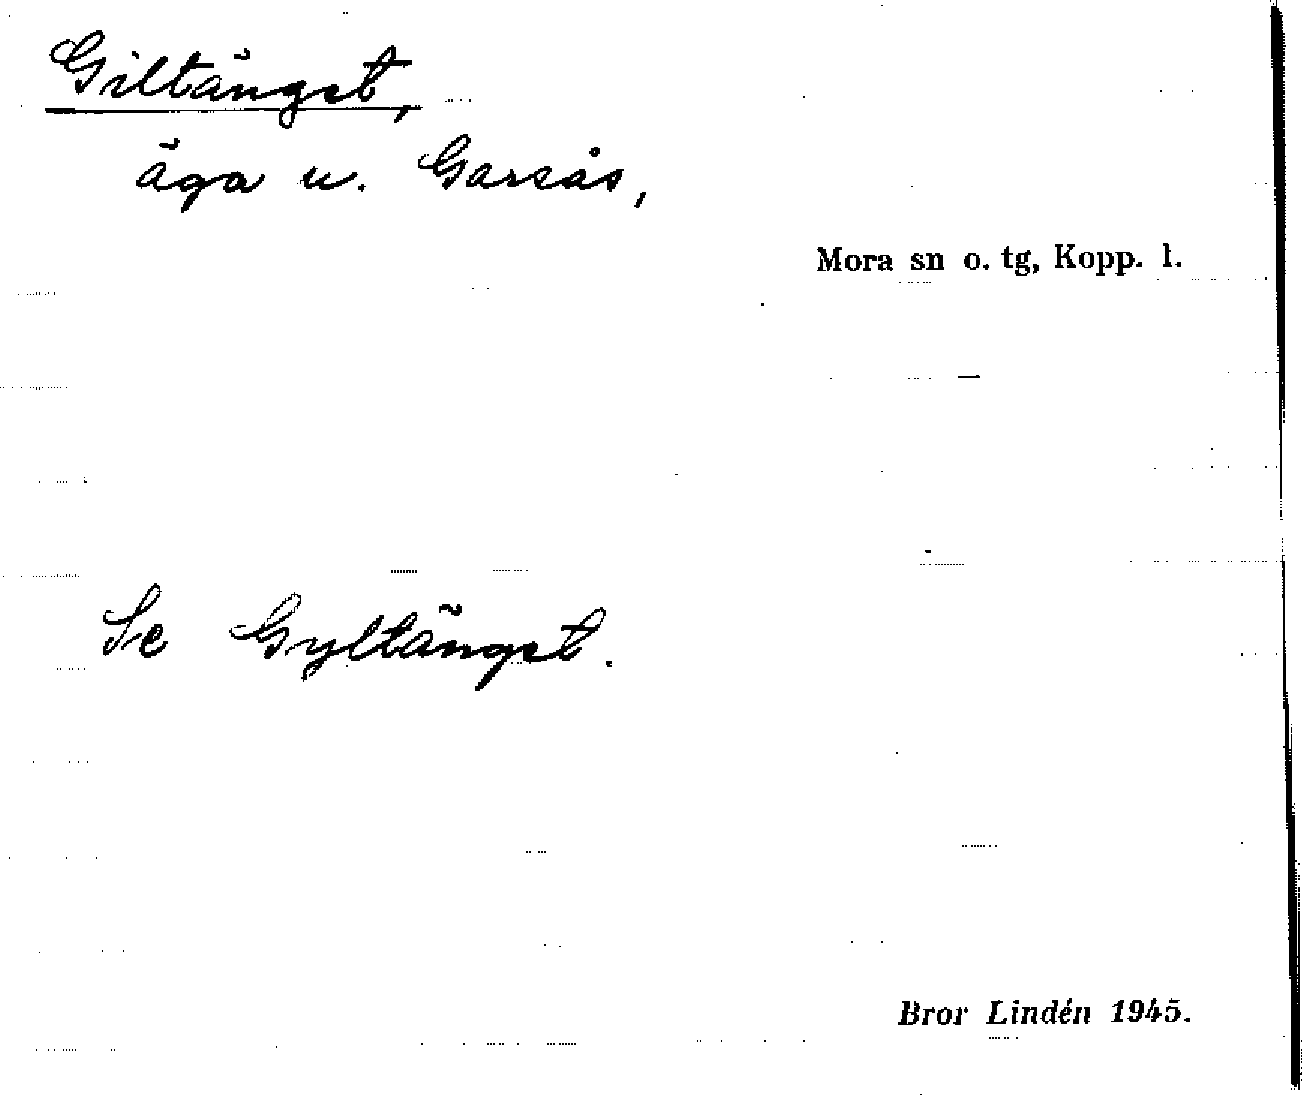 Giltängst,
äga u. Garsås,
Mora sn o. tg, Kopp. l.
Se Gyltängst.
Bror Lindén 1945.